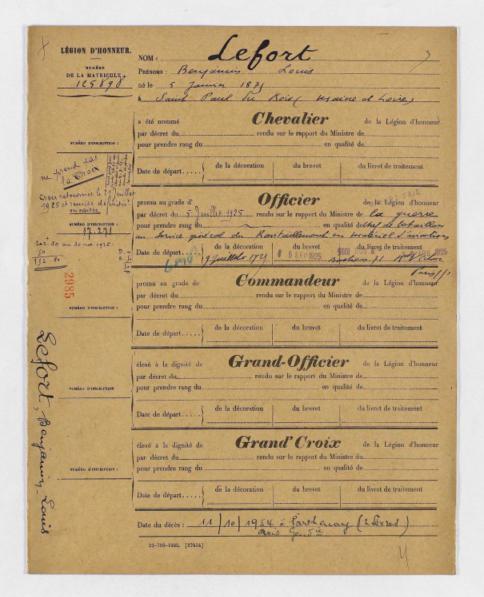 LÉGION D'HONNEUR.
NUMÉRO
DE LA MATRICULE.
125898
NOM : Lefort
Prénoms : Benjamin Louis
né le 5 Janvier 1875
à Saint Paul du Bois Maine et Loire
a été nommé Chevalier de la Légion d'honneur
par décret du rendu sur le rapport du Ministre de
pour prendre rang du en qualité de
NUMÉRO D'INSCRIPTION :
Date de départ de la décoration du brevet du livret de traitement
ne prend pas
la croix
Croix retournée le 21 Juillet
1925
promu au grade d' Officier de la Légion d'honneur
par décret du 5 Juillet 1925 rendu sur le rapport du Ministre de la guerre
pour prendre rang du en qualité de chef de bataillon
au service général du Ravitaillement en matériel
NUMÉRO D'INSCRIPTION
17.271
Date de départ de la décoration du brevet du livret de traitement
9 Juillet 1925
2985
promu au grade de Commandeur de la Légion d'honneur
par décret du rendu sur le rapport du Ministre de
pour prendre rang du en qualité de
NUMÉRO D'INSCRIPTION :
Date de départ de la décoration du brevet du livret de traitement
élevé à la dignité de Grand-Officier de la Légion d'honneur
par décret du rendu sur le rapport du Ministre de
pour prendre rang du en qualité de
NUMÉRO D'INSCRIPTION
Date de départ de la décoration du brevet du livret de traitement
élevé à la dignité de Grand'Croix de la Légion d'honneur
par décret du rendu sur le rapport du Ministre de
pour prendre rang du en qualité de
NUMÉRO D'INSCRIPTION :
Date de départ de la décoration du brevet du livret de traitement
Date du décès : 11/10/1954 à Parthenay (2 Sèvres)
Lefort, Benjamin-Louis